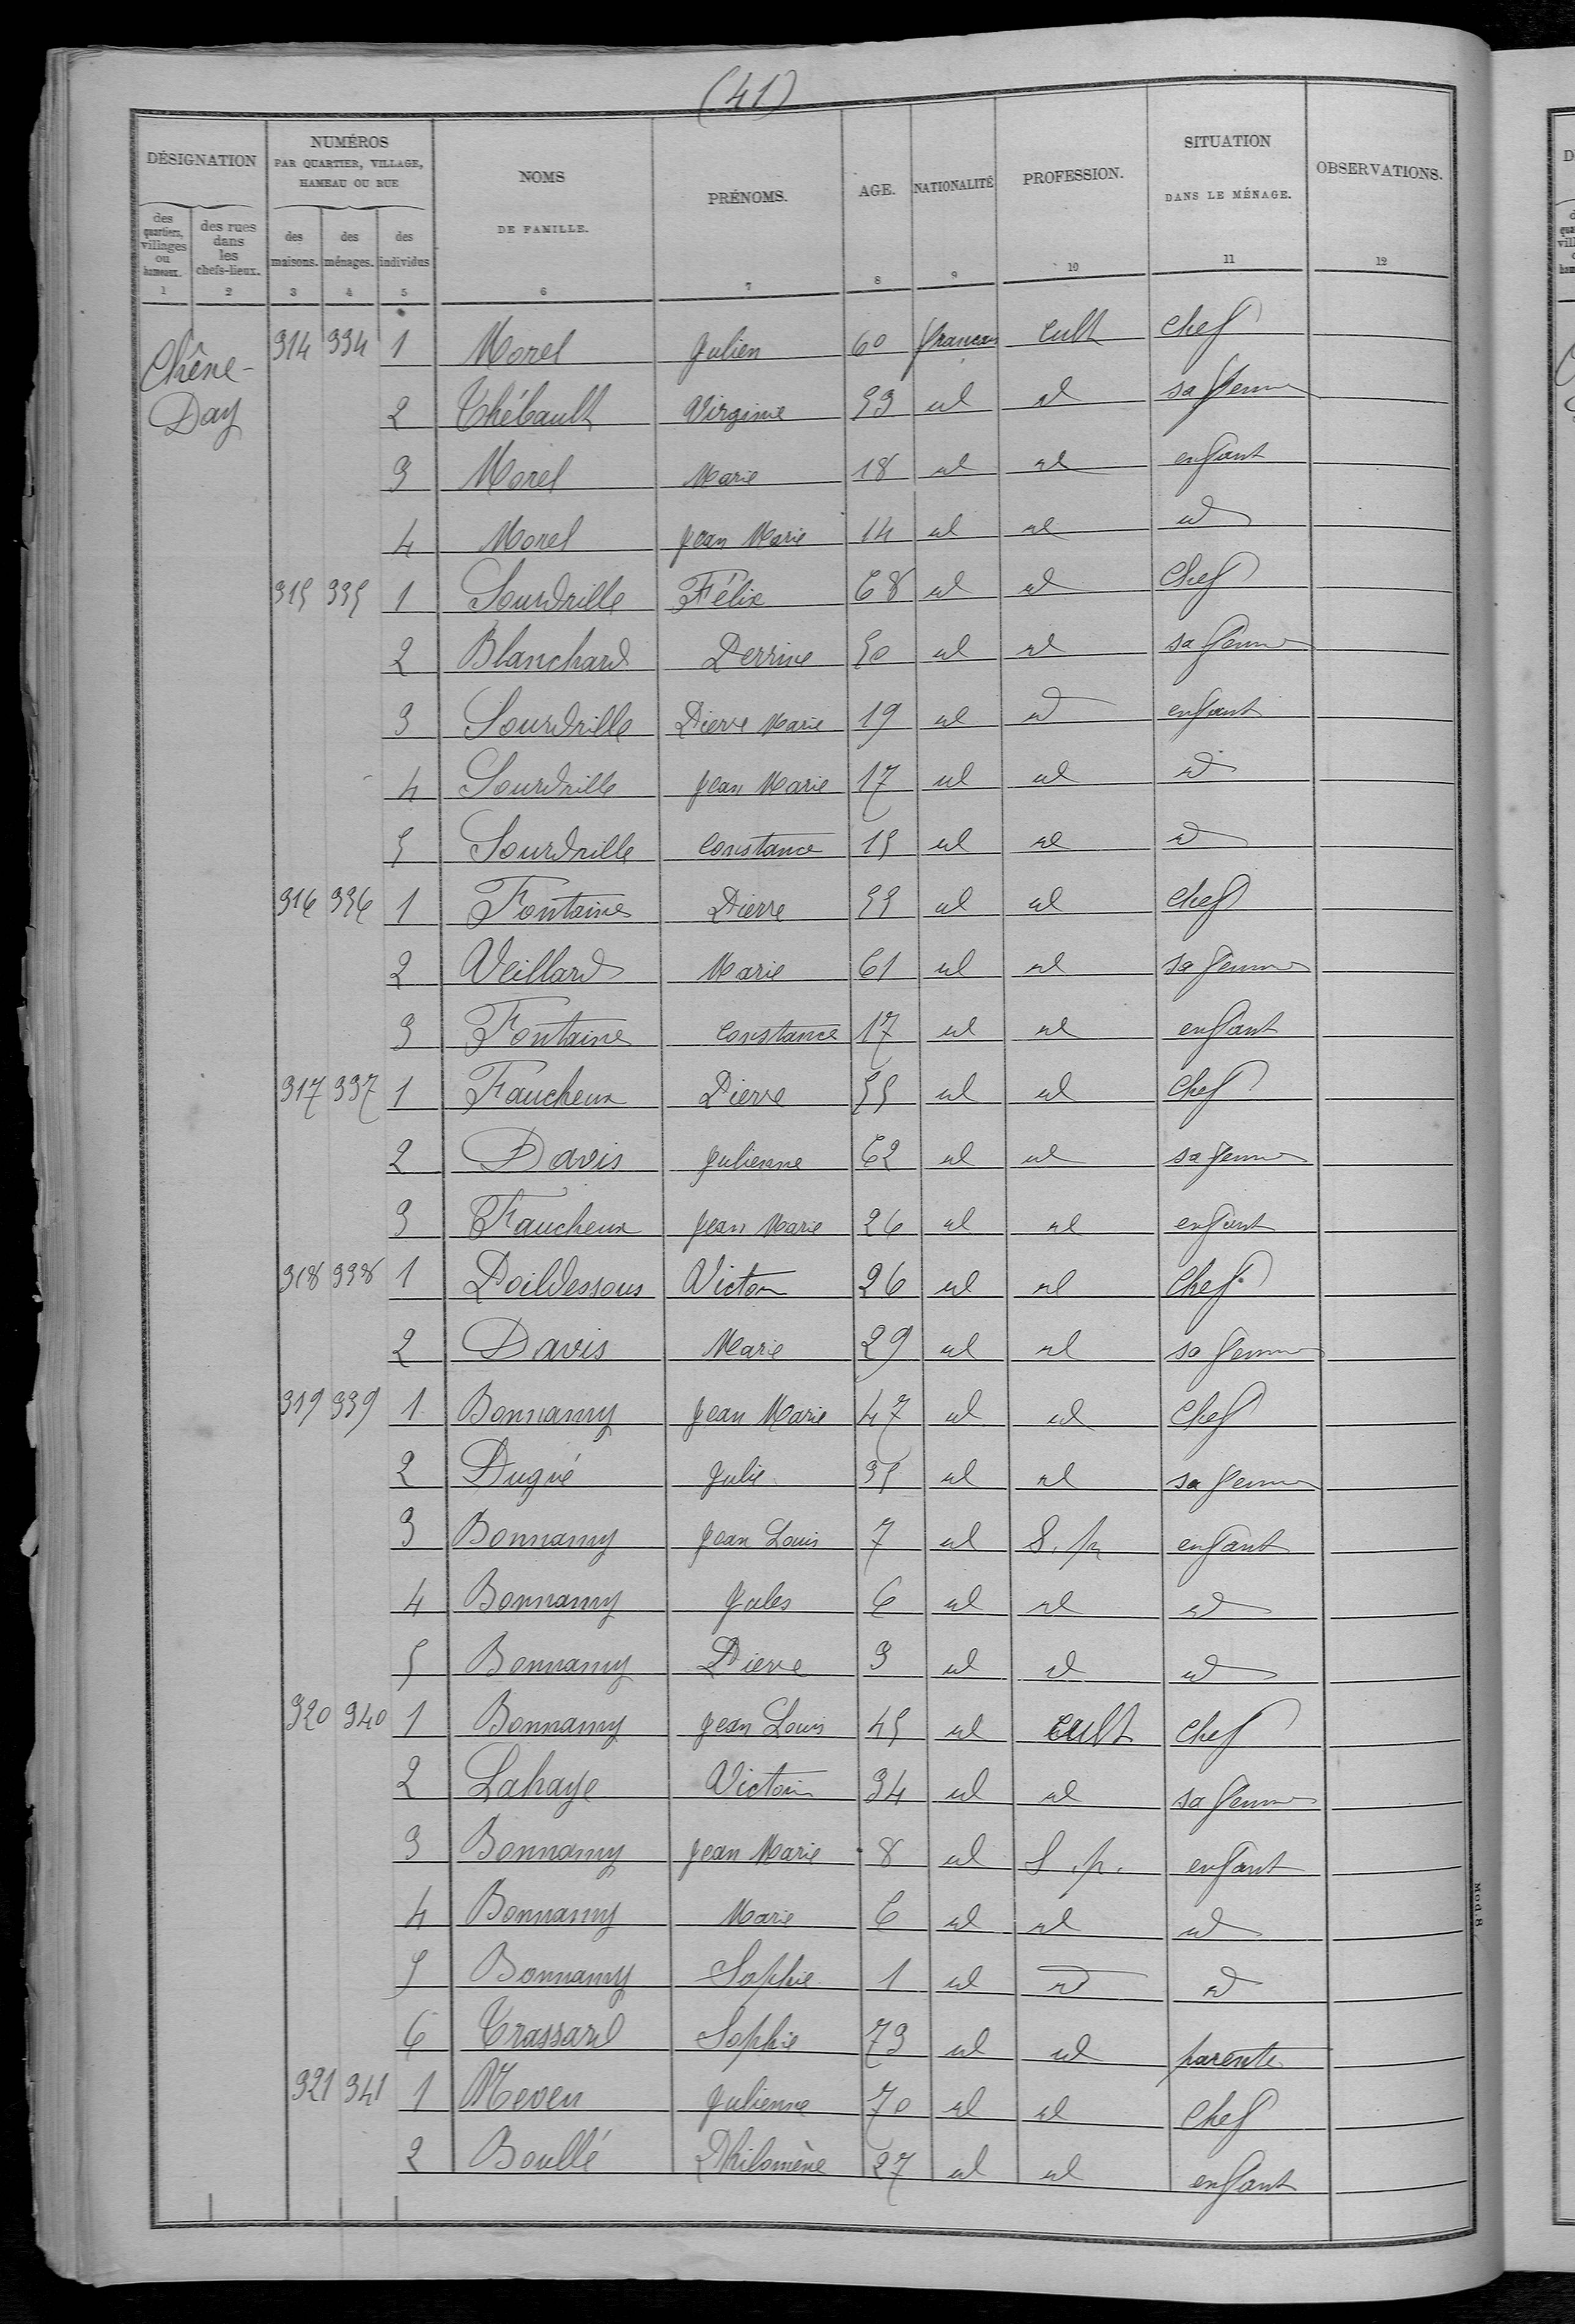 (41)
DÉSIGNATION NUMÉROS PAR QUARTIER, VILLAGE, HAMEAU OU RUE NOMS DE FAMILLE. PRÉNOMS. AGE. NATIONALITÉ PROFESSION. SITUATION DANS LE MÉNAGE. OBSERVATIONS.
des quartiers, villages ou hameaux. des rues dans les chefs-lieux. des maisons. des ménages. des individus
1 2 3 4 5 6 7 8 9 10 11 12
Chêne-Day 314 334 1 Morel Julien 60 français cult chef
2 Thébault Virginie 53 id id sa femme
3 Morel Marie 18 id id enfant
4 Morel Jean Marie 14 id id id
315 335 1 Sourdrille Félix 68 id id Chef
2 Blanchard Perrine 50 id id sa femme
3 Sourdrille Pierre Marie 19 id id enfant
4 Sourdrille Jean Marie 17 id id id
5 Sourdrille Constance 15 id id id
316 336 1 Fontaine Pierre 55 id id Chef
2 Veillard Marie 61 id id sa femme
3 Fontaine Constance 17 id id enfant
317 337 1 Faucheux Pierre 55 id id Chef
2 Davis Julienne 62 id id sa femme
3 Faucheux Jean Marie 26 id id enfant
318 338 1 Poildessous Victor 26 id id Chef
2 Davis Marie 29 id id sa femme
319 339 1 Bonnamy Jean Marie 47 id id Chef
2 Dugué Julie 35 id id sa femme
3 Bonnamy Jean Louis 7 id S. p. enfant
4 Bonnamy Jules 6 id id id
5 Bonnamy Pierre 3 id id id
320 340 1 Bonnamy Jean Louis 45 id cult Chef
2 Lahaye Victoire 34 id id sa femme
3 Bonnamy Jean Marie 8 id S. p. enfant
4 Bonnamy Marie 6 id id id
5 Bonnamy Sophie 1 id id id
6 Trassard Sophie 73 id id parente
321 341 1 Meven Julienne 70 id id Chef
2 Boullé Philomène 27 id id enfant
Mod. 8